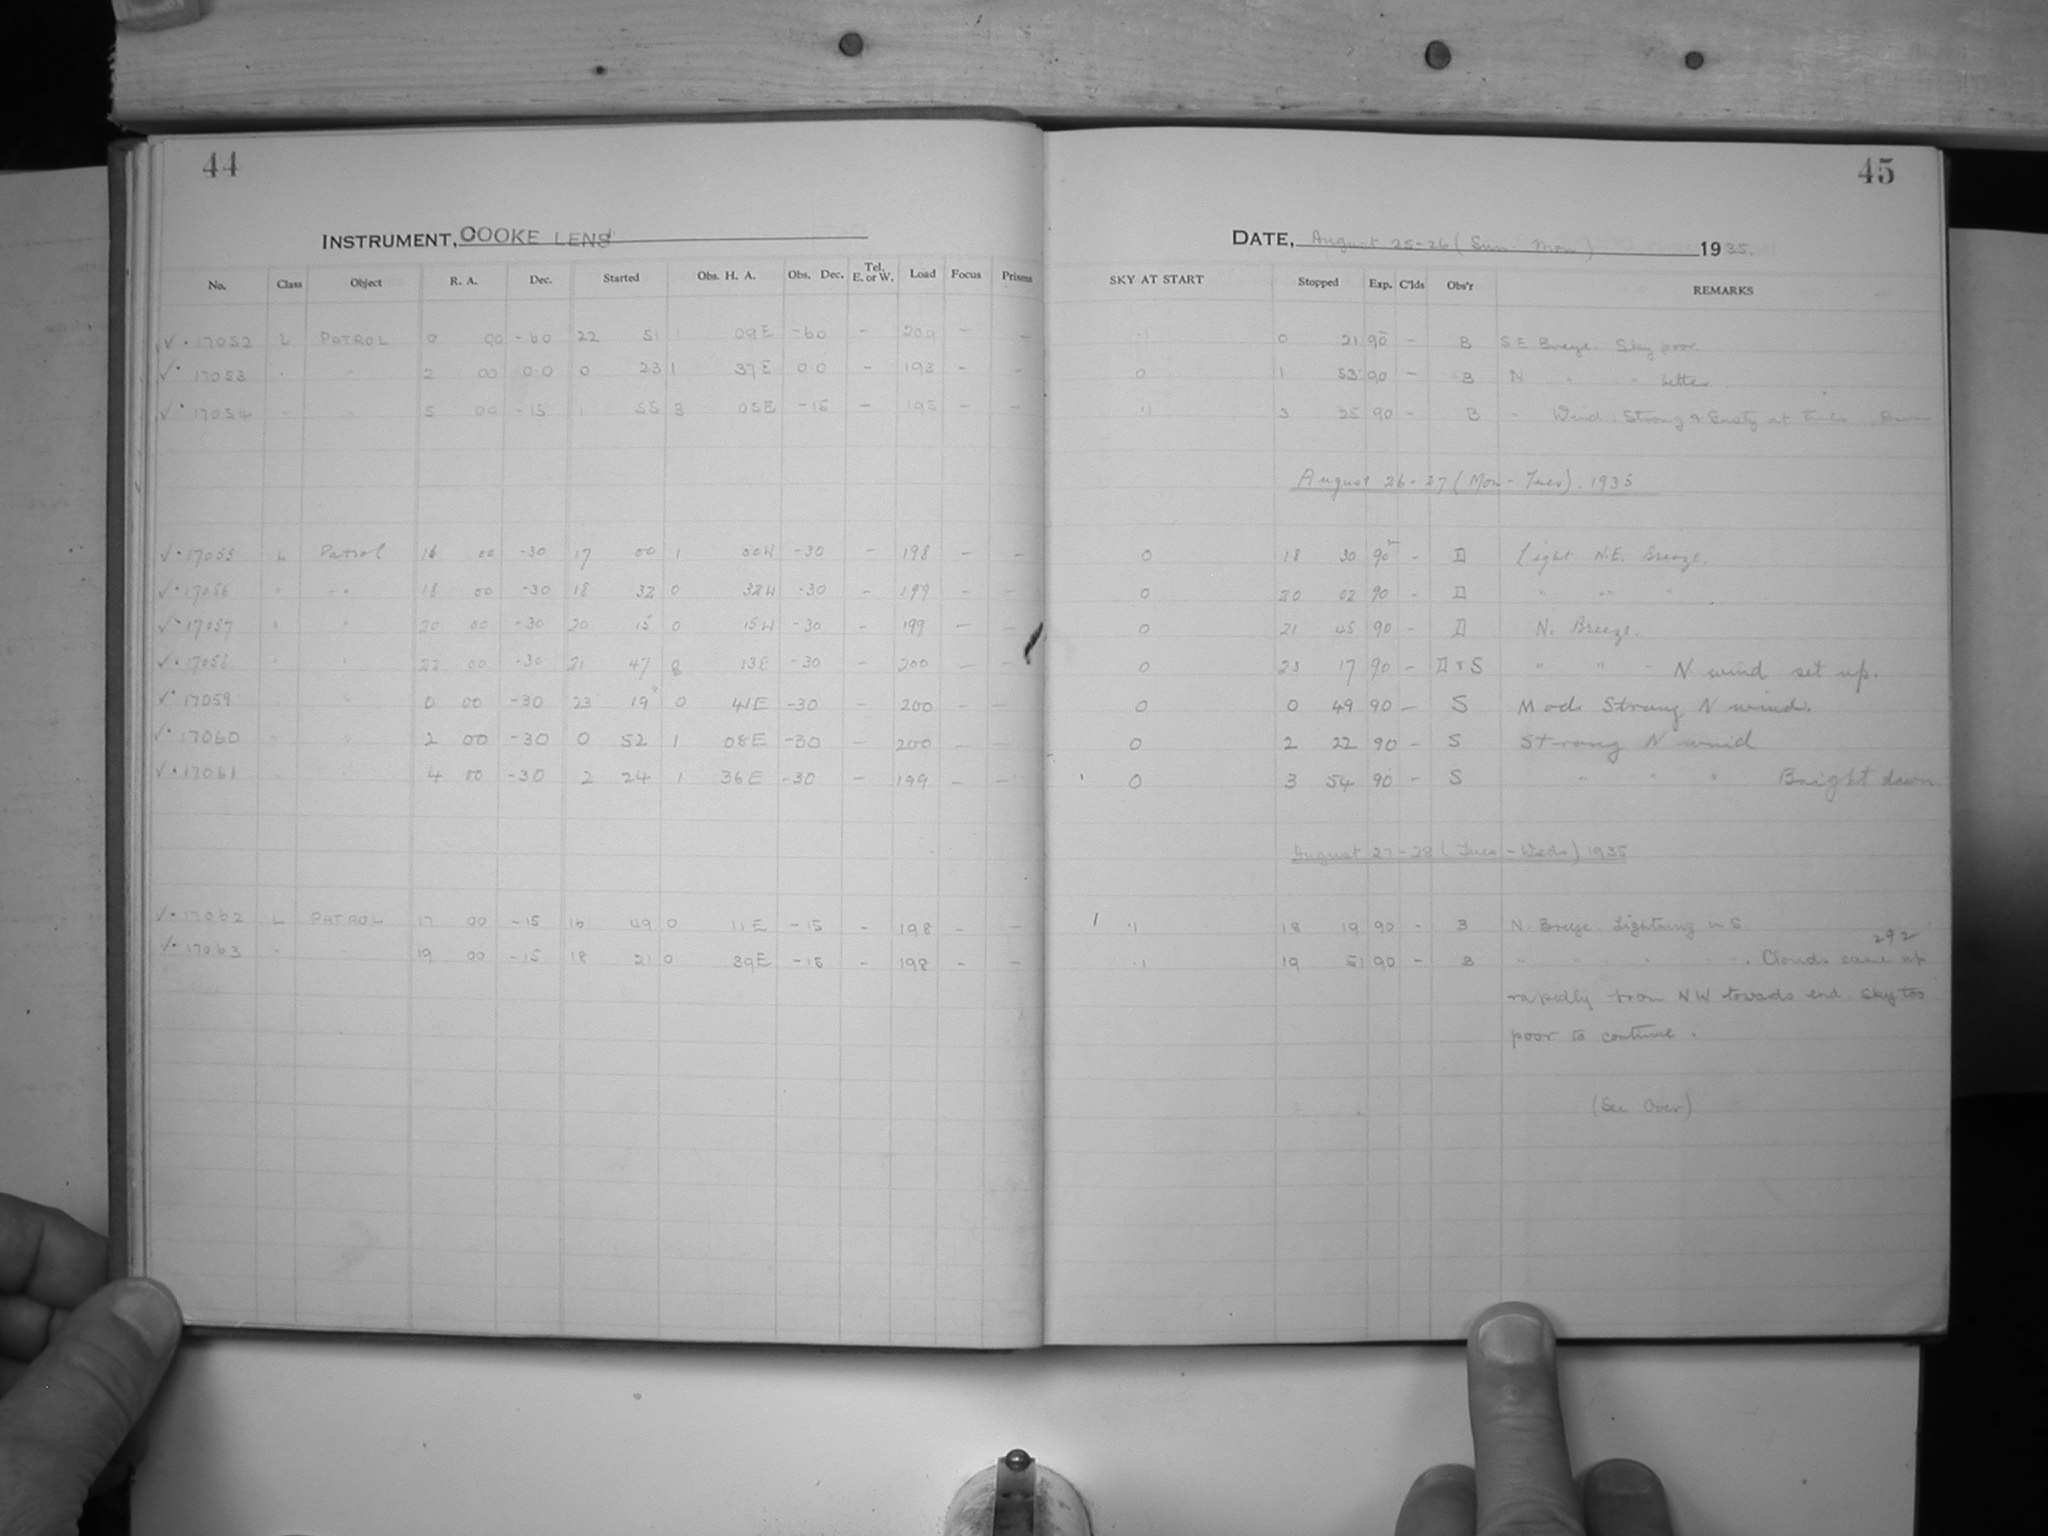 44
INSTRUMENT, COOKE LENS
No. Class Object R. A. Dec. Started Obs. H. A. Obs. Dec. Tel. E. or W. Load Focus Prisms
✓ · 17052 L PATROL 0 00 -60 22 51 1 09E -60 - 209 - -
✓ · 17053 " " 2 00 00 0 23 1 37E 00 - 193 - -
✓ · 17054 " " 5 00 -15 1 55 3 05E -15 - 195 - -
✓ · 17055 L Patrol 16 00 -30 17 00 1 00W -30 - 198 - -
✓ · 17056 " " 18 00 -30 18 32 0 32W -30 - 199 - -
✓ · 17057 " " 20 00 -30 20 15 0 15W -30 - 199 - -
✓ · 17058 " " 22 00 -30 21 47 0 13E -30 - 200 - -
✓ · 17059 " 0 00 -30 23 19 0 41E -30 - 200 - -
✓ · 17060 " " 2 00 -30 0 52 1 08E -30 - 200 - -
✓ · 17061 " " 4 00 -30 2 24 1 36E -30 - 199 - -
✓ · 17062 L PATROL 17 00 -15 16 49 0 11E -15 - 198 - -
✓ · 17063 " " 19 00 -15 18 21 0 39E -15 - 198 - -
45
DATE, August 25-26 (Sun - Mon) 1935.
SKY AT START Stopped Exp. C'lds Obs'r REMARKS
·1 0 21 90 - B S E Breeze. Sky poor.
0 1 53 90 - B N " " better
·1 3 25 90 - B " Wind: Strong & Gusty at times. Dawn
August 26-27 (Mon - Tues). 1935
0 18 30 90m - II Light N.E. Breeze.
0 20 02 90 - II " " "
0 21 45 90 - II N. Breeze.
0 23 17 90 - II & S " " - N wind set up.
0 0 49 90 - S Mod. Strong N wind.
0 2 22 90 - S Strong N wind
0 3 54 90 - S " " " Bright dawn
August 27-28 (Tues - Weds) 1935
·1 18 19 90 - B N. Breeze. Lightning in S.
292
·1 19 51 90 - B " " " " . Clouds came up
rapidly from NW towards end. Sky too
poor to continue.
(See Over)